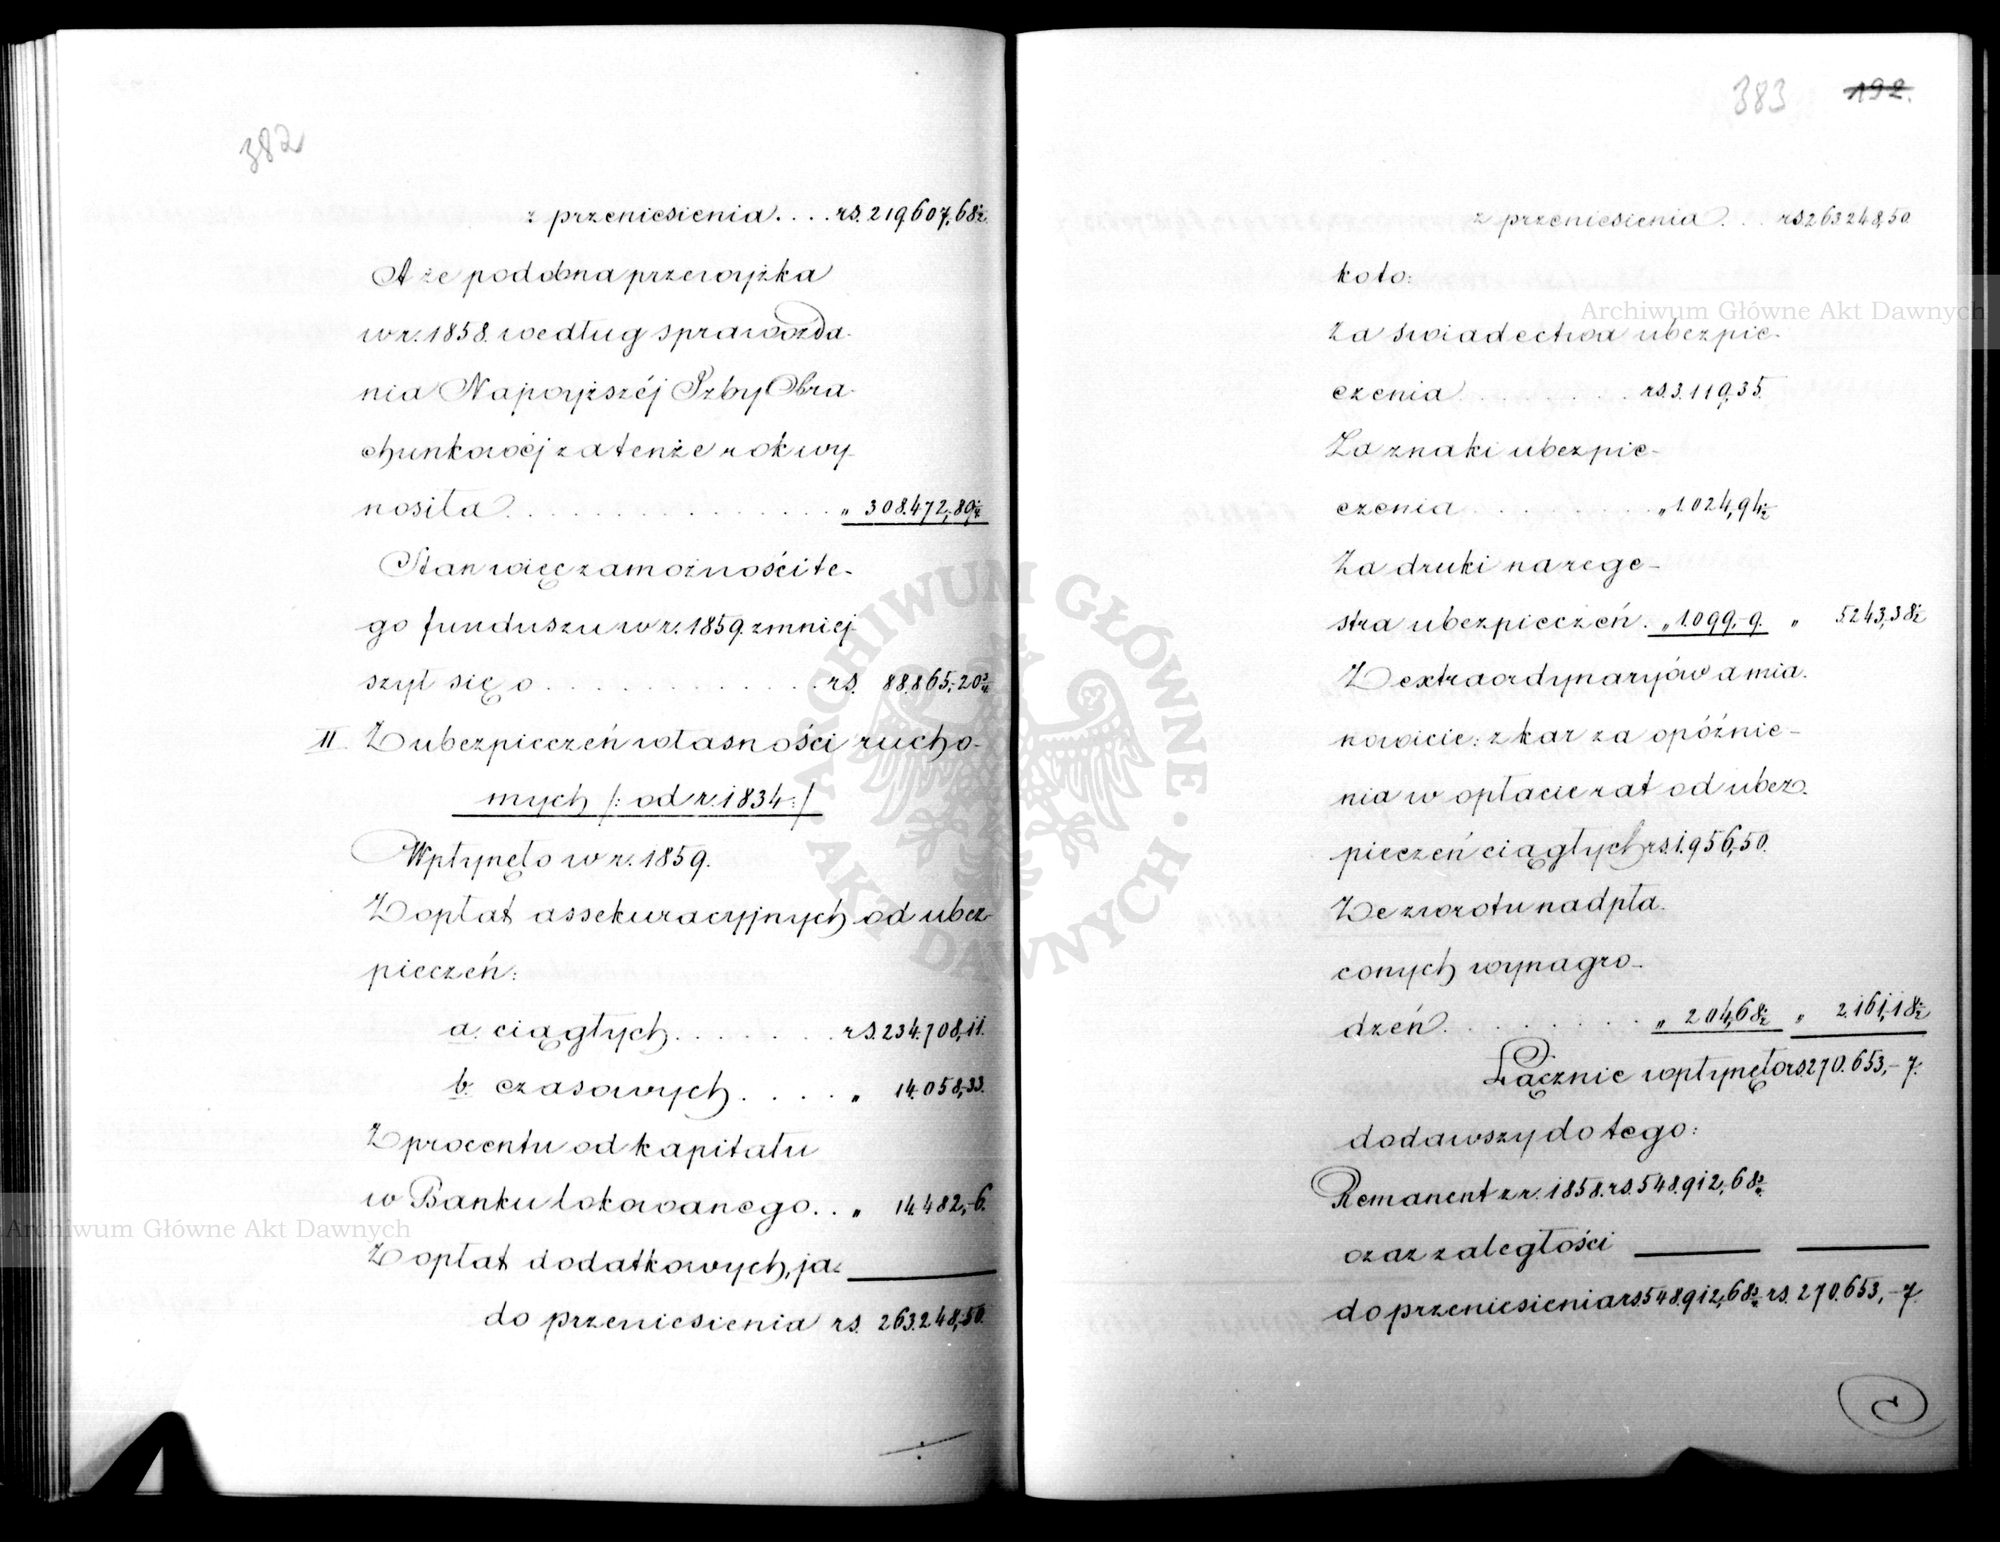 382
z przeniesienia.... rs. 219,607,68½
A że podobna przewyżka
w r. 1858. według sprawozda-
nia Najwyższéj Izby Obra-
chunkowéj za tenże rok wy-
nosiła................ „ 308.472,89¼
Stan więc zamożności te-
go funduszu w r. 1859. zmniej-
szył się o............. rs. 88.865,20¾
II. Z ubezpieczeń własności rucho-
mych /: od r. 1834 :/
Wpłynęło w r. 1859.
Z opłat assekuracyjnych od ubez-
pieczeń:
a. ciągłych....... rs. 234.708,11.
b. czasowych..... „ 14.058,33.
Z procentu od kapitału
w Banku lokowanego... „ 14.482,-6.
Z opłat dodatkowych, ja-
do przeniesienia rs. 263.248,50.
383 192.
z przeniesienia... rs 263248,50
koto:
Za świadectwa ubezpie-
czenia......... rs. 3.119,35.
Za znaki ubezpie-
czenia.......... „ 1.024,94½
Za druki na rege-
stra ubezpieczeń. „ 1.099,-9. „ 5.243,38½
Z extraordynaryów a mia-
nowicie: z kar za opóźnie-
nia w opłacie rat od ubez-
pieczeń ciągłych rs. 1.956,50.
Ze zwrotu nadpła-
conych wynagro-
dzeń......... „ 204,68½ „ 2.161,18½
Łącznie wpłynęło rs. 270.653,-7.
dodawszy do tego:
Remanent z r. 1858. rs. 548.912,68¾
oraz zaległości
do przeniesienia rs. 548.912,68¾ rs. 270.653,-7.
Archiwum Główne Akt Dawnych
Archiwum Główne Akt Dawnych
ARCHIWUM GŁÓWNE · AKT DAWNYCH ·